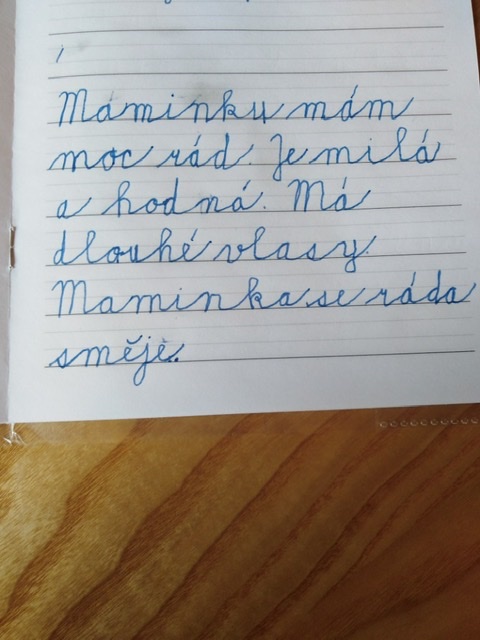 Maminku mám
moc rád. Je milá
a hodná. Má
dlouhé vlasy.
Maminka se ráda
směje.